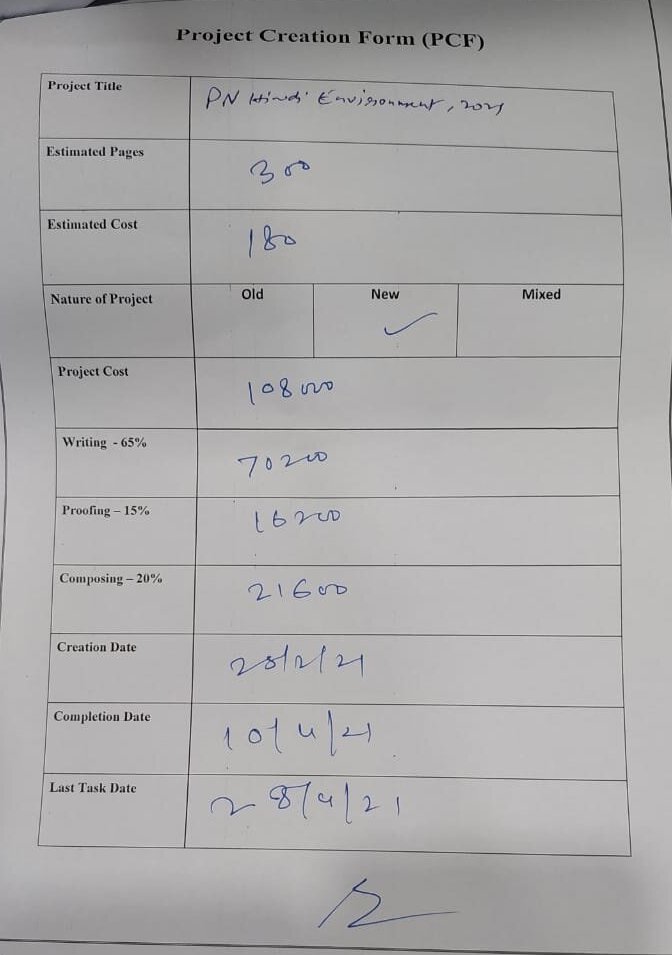 Project Creation Form (PCF)
Project Title PN Hindi Environment, 2021
Estimated Pages 300
Estimated Cost 180
Nature of Project Old New ✓ Mixed
Project Cost 108000
Writing - 65% 70200
Proofing – 15% 16200
Composing – 20% 21600
Creation Date 28/2/21
Completion Date 10/4/21
Last Task Date 28/4/21